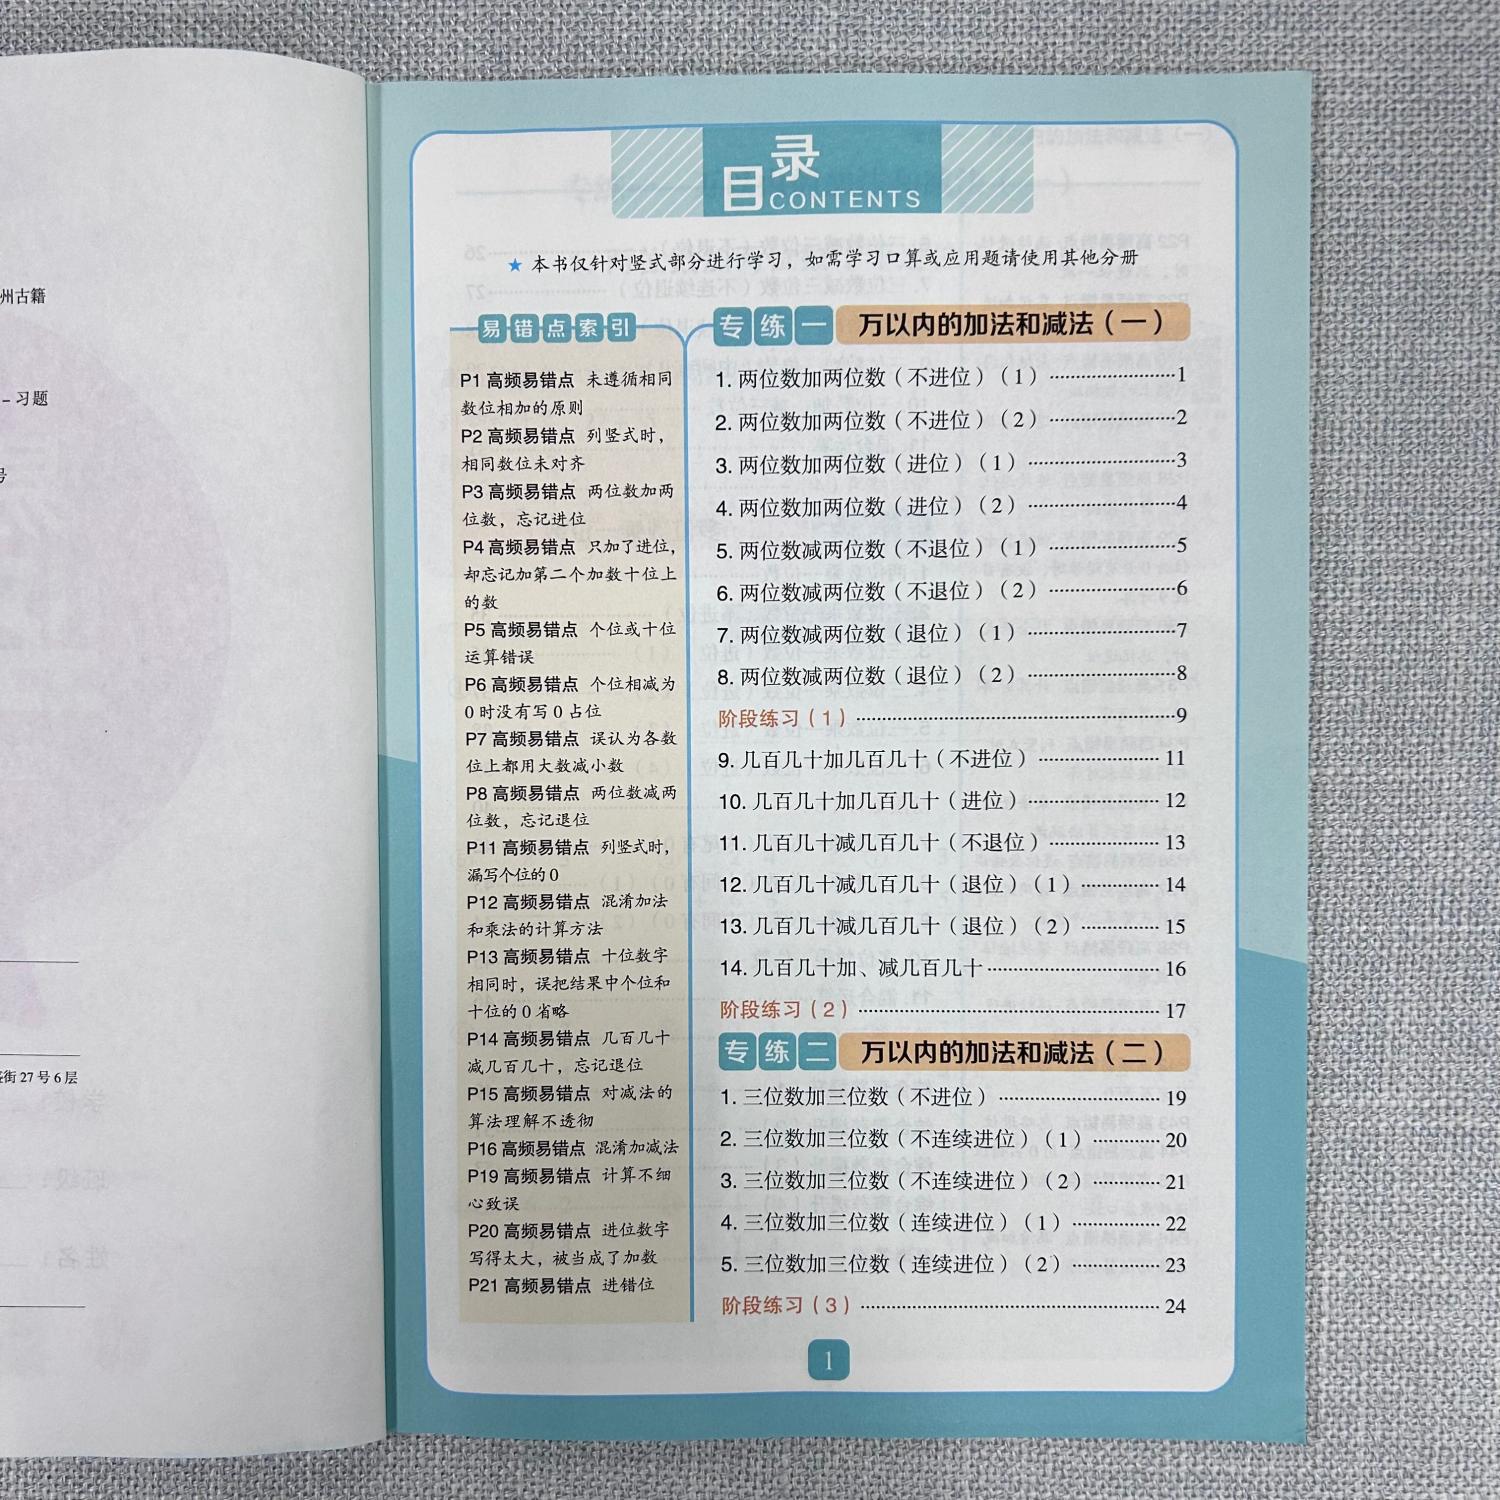 州古籍
-习题
号
街27号6层
目录
CONTENTS
★ 本书仅针对竖式部分进行学习，如需学习口算或应用题请使用其他分册
易错点索引
P1 高频易错点 未遵循相同
数位相加的原则
P2 高频易错点 列竖式时，
相同数位未对齐
P3 高频易错点 两位数加两
位数，忘记进位
P4 高频易错点 只加了进位，
却忘记加第二个加数十位上
的数
P5 高频易错点 个位或十位
运算错误
P6 高频易错点 个位相减为
0时没有写0占位
P7 高频易错点 误认为各数
位上都用大数减小数
P8 高频易错点 两位数减两
位数，忘记退位
P11 高频易错点 列竖式时，
漏写个位的0
P12 高频易错点 混淆加法
和乘法的计算方法
P13 高频易错点 十位数字
相同时，误把结果中个位和
十位的0省略
P14 高频易错点 几百几十
减几百几十，忘记退位
P15 高频易错点 对减法的
算法理解不透彻
P16 高频易错点 混淆加减法
P19 高频易错点 计算不细
心致误
P20 高频易错点 进位数字
写得太大，被当成了加数
P21 高频易错点 进错位
专练一 万以内的加法和减法（一）
1. 两位数加两位数（不进位）（1）……………1
2. 两位数加两位数（不进位）（2）……………2
3. 两位数加两位数（进位）（1）……………3
4. 两位数加两位数（进位）（2）……………4
5. 两位数减两位数（不退位）（1）……………5
6. 两位数减两位数（不退位）（2）……………6
7. 两位数减两位数（退位）（1）……………7
8. 两位数减两位数（退位）（2）……………8
阶段练习（1）……………9
9. 几百几十加几百几十（不进位）……………11
10. 几百几十加几百几十（进位）……………12
11. 几百几十减几百几十（不退位）……………13
12. 几百几十减几百几十（退位）（1）……………14
13. 几百几十减几百几十（退位）（2）……………15
14. 几百几十加、减几百几十……………16
阶段练习（2）……………17
专练二 万以内的加法和减法（二）
1. 三位数加三位数（不进位）……………19
2. 三位数加三位数（不连续进位）（1）……………20
3. 三位数加三位数（不连续进位）（2）……………21
4. 三位数加三位数（连续进位）（1）……………22
5. 三位数加三位数（连续进位）（2）……………23
阶段练习（3）……………24
1